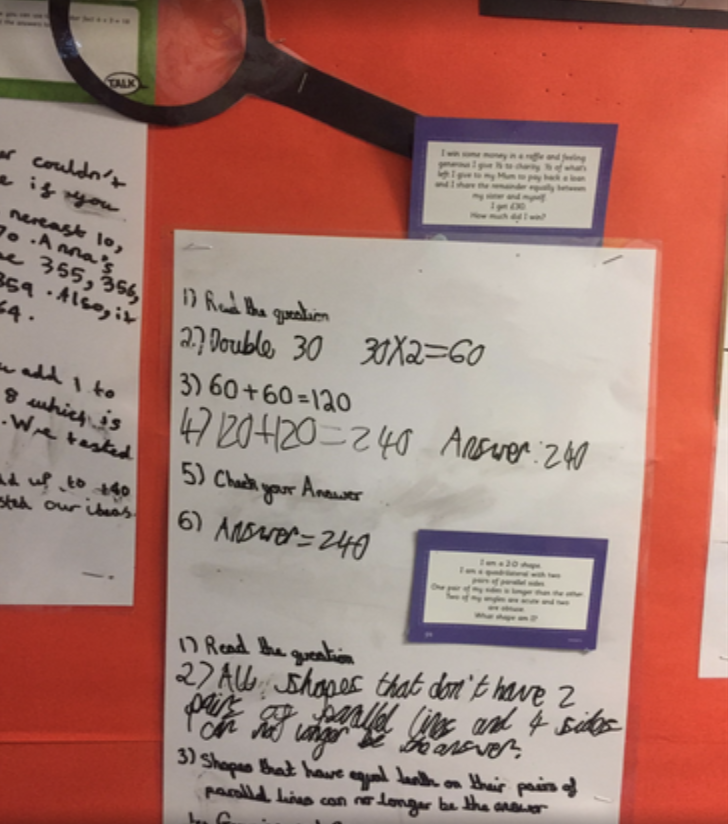 TALK
er couldn't
e if you
nereast 10,
70. Anna's
355, 356,
359. Also, it
64.
add 1 to
8 which is
. We tested
up to +40
our ideas
I win some money in a raffle and feeling
generous I give ½ to charity. ½ of what's
left I give to my Mum to pay back a loan
and I share the remainder equally between
my sister and myself.
I get £30.
How much did I win?
1) Read the question
2.) Double 30 30X2=60
3) 60+60=120
4) 120+120=240 Answer: 240
5) Check your Answer
6) Answer=240
I am a 2D shape.
I am a quadrilateral with two
pairs of parallel sides.
One pair of my sides is longer than the other.
Two of my angles are acute and two
are obtuse.
What shape am I?
1) Read the question
2) All shapes that don't have 2
pairs of parallel lines and 4 sides
can no longer be the answer.
3) Shapes that have equal lenth on their pairs of
parallel lines can no longer be the answer